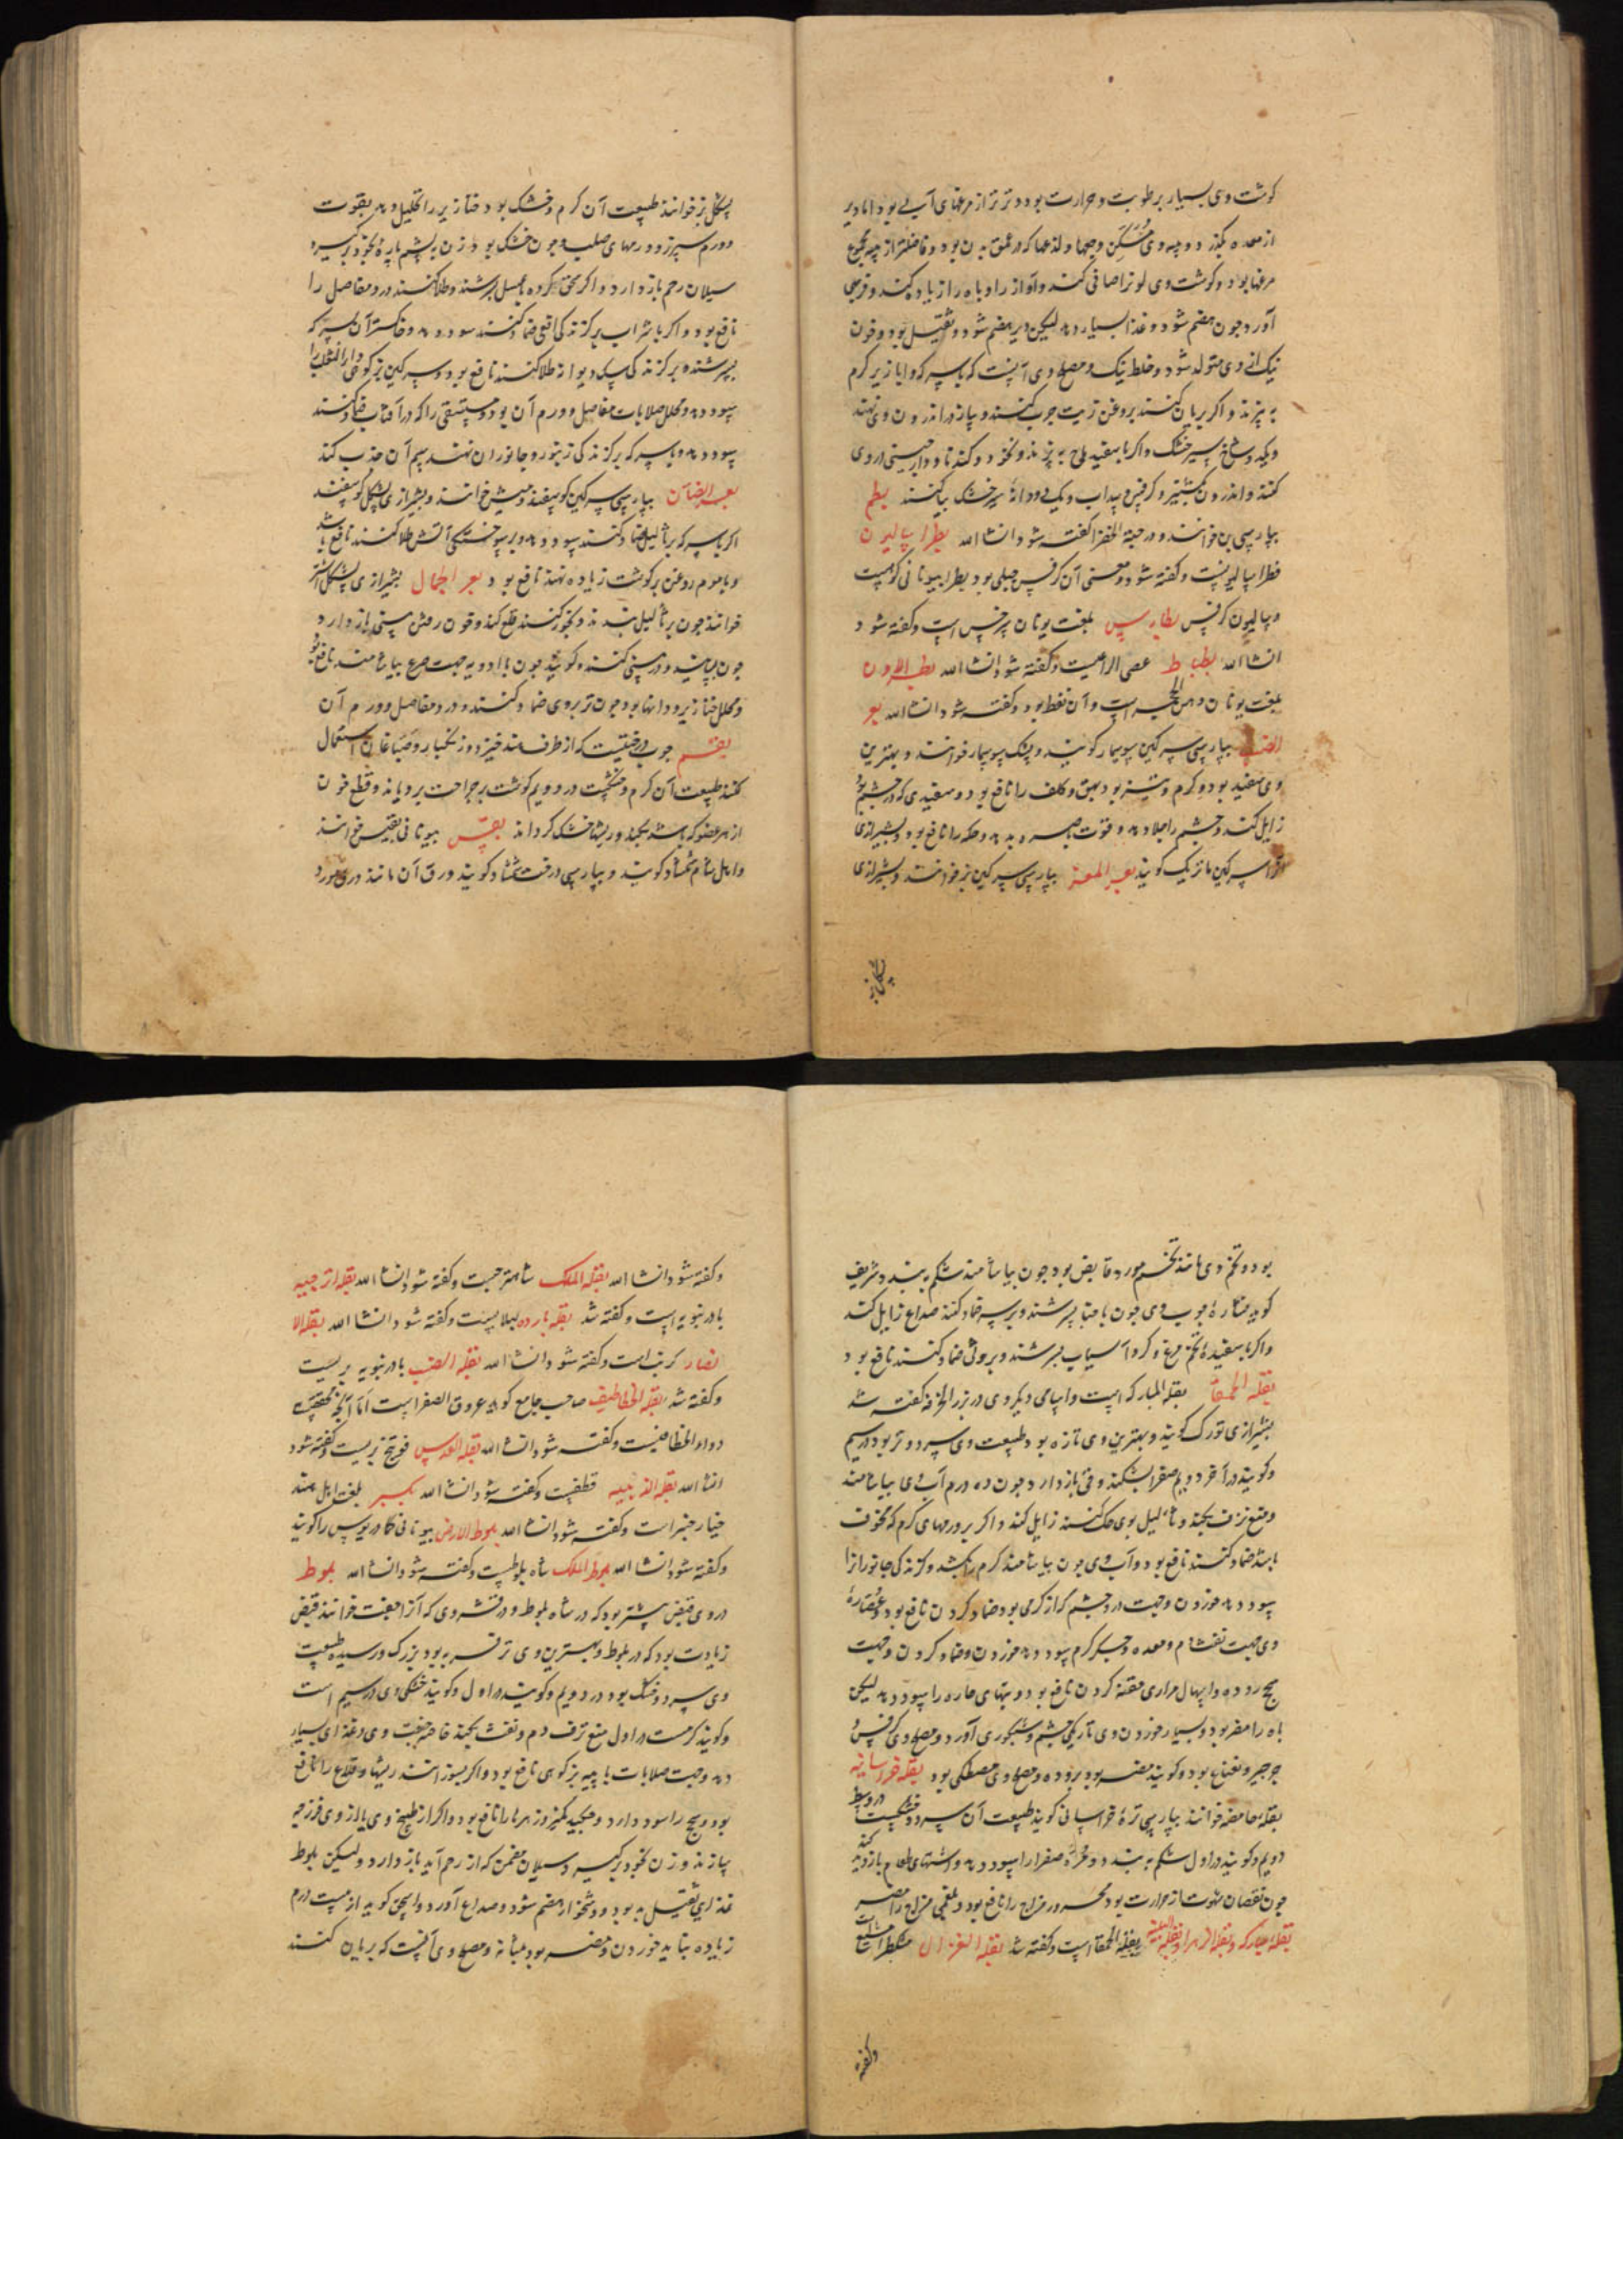 کوشت وی بسیار برطوبت و حرارت بود و تر تر از مرغهای آبی بود اما دیر
از معده بگذرد و پیه وی مسکن وجعها و لذعها که در عمق بدن بود و فاضلتر از پیه مجموع
مرغها بود و کوشت وی لون را صافی کند و آواز را و باه را زیاده کند و فربهی
آورد چون هضم شود و غذا بسیار دهد لیکن دیر هضم شود و ثقیل بود و خون
نیک از وی متولد شود و خلط نیک و مصلح وی آنست که با سرکه و ابازیر کرم
به پزند و اکر بریان کنند بروغن زیت چرب کنند و پیاز در اندرون وی نهند
و یکد و شاخ سیر خشک و اکر با سفید باج به پزند و نخود و کند نا و دارچینی در وی
کنند و اندرون کشنیز و کرفس و سداب و یک دو دانهٔ سیر خشک بیاکنند بطم
بپارسی بن خوانند و در حبة الخضرا کفته شود انشا الله بطرا سالیون
فطرا سالیونست و کفته شود و معنی آن کرفس جبلی بود بطرا بیونانی کوهست
و سالیون کرفس بطارس بلغت یونان سرخس است و کفته شود
انشا الله بطباط عصی الراعیست و کفته شود انشا الله بطرالاون
بلغت یونان دهن الحجر است و آن نفط بود و کفته شود انشا الله بعر
الضب بپارسی سرکین سوسمار کویند و پشک سوسمار خوانند و بهترین
وی سفید بود و کرم و تیز بود بهق و کلف را نافع بود و سفیدی که در چشم بود
زایل کند و چشم را جلا دهد و قوت باصره بدهد و حکه را نافع بود و بشیرازی
آنرا سرکین مازنیک کویند بعر المعز بپارسی سرکین بز خوانند و بشیرازی
پشکل بز
پشکل بز خوانند طبیعت آن کرم و خشک بود خنازیر را تحلیل دهد بقوت
و ورم سپرز و ورمهای صلب و چون خشک بود و زن بپشم پاره بخود برکیرد
سیلان رحم باز دارد و اکر سحق کرده بعسل بسرشند و طلا کنند درد مفاصل را
نافع بود و اکر با شراب بر کزند کی افعی ضماد کنند سود دهد و خاکستر آن بسرکه
بسرشند و بر کزند کی سک دیوانه طلا کنند نافع بود و سرکین بز کوهی داء الثعلب را
سود دهد و محلل صلابات مفاصل و ورم آن بود و مستسقی را که در آفتاب ضماد کنند
سود دهد و با سرکه بر کزند کی زنبور و جانوران نهند سم آن جذب کند
بعر الضان بپارسی سرکین کوسفند و میش خوانند و بشیرازی پشکل کوسفند
اکر با سرکه بر ثالیل ضماد کنند سود دهد و بر سوختکی آتش طلا کنند نافع باشد
و با موم روغن بر کوشت زیاده نهند نافع بود بعر الجمال بشیرازی پشکل اشتر
خوانند چون بر ثالیل بندند و بخور کنند قلع کند و خون رفتن بینی باز دارد
چون بسایند و در بینی کنند و کویند چون با ادویه جهت صرع بیاشامند نافع بود
و محلل خنازیر و دانها بود چون تر بر وی ضماد کنند و درد مفاصل و ورم آن
بقم چوب درختیست که از طرف هند خیزد و زنکبار و صباغان استعمال
کنند طبیعت آن کرم و خشکست در دویم کوشت بر جراحت برویاند و قطع خون
از هر عضو که باشد بکند و ریشها خشک کرداند بقس بیونانی بقسیس خوانند
و اهل شام شمشاد کویند و بپارسی درخت شمشاد کویند ورق آن مانند ورق مورد
بود و تخم وی مانند تخم مورد قابض بود چون بیاشامند شکم ببندد و شریف
کوید نشارهٔ چوب وی چون با حنا بسرشند و بر سر ضماد کنند صداع زایل کند
و اکر با سفیدهٔ تخم مرغ و کرد آسیاب بسرشند و بر وثی ضماد کنند نافع بود
بقلة الحمقا بقلة المبارکه است و اسامی دیکر وی در بزر الخرفه کفته شد
بشیرازی تورک کویند و بهترین وی تازه بود طبیعت وی سرد و تر بود در سیم
و کویند در آخر دویم صفرا بشکند و قی باز دارد چون ده درم آب وی بیاشامند
و منع نزف بکند و ثالیل بوی حک کنند زایل کند و اکر بر ورمهای کرم که مخوف
باشد ضماد کنند نافع بود و آب وی چون بیاشامند کرم را بکشد و کزند کی جانورانرا
سود دهد خوردن و جهت درد چشم کز از کرمی بود ضماد کردن نافع بود و عصارهٔ
وی جهت نفث دم و معده و جکر کرم سود دهد خوردن و ضماد کردن و جهت
سحج روده و اسهال مراری حقنه کردن نافع بود و تبهای حاره را سود دهد لیکن
باه را مضر بود و بسیار خوردن وی تاریکی چشم و شبکوری آورد و مصلح وی کرفس و
جرجیر و نعناع بود و کویند مضر بود بروده و مصلح وی مصطکی بود بقله خراسانیه
بقله حامضه خوانند بپارسی ترهٔ خراسانی کویند طبیعت آن سرد و خشکست در وسط
دویم و کویند در اول شکم به بندد و محرّهٔ صفرا را سود دهد و اشتهای طعام بازدید کند
چون نقصان شهوت از حرارت بود محرور مزاج را نافع بود و بلغمی مزاج را مضر
بقلهٔ مبارکه و بقلة الزهرا و بقلة اللینه بقلة الحمقا است و کفته شد بقلة الغزال مشکطرامشیع است
و کفته
و کفته شود انشا الله بقلة الملک شاهترجست و کفته شود انشا الله بقلة اترجیه
بادرنبویه است و کفته شد بقله بارده لبلابست و کفته شود انشا الله بقلة الا
نصار کرنب است و کفته شود انشا الله بقلة الضب بادرنبویه بریست
و کفته شد بقلة الخطاطیف صاحب جامع کوید عروق الصفر است اما آنچه محققست
دواء الخطاطیفست و کفته شود انشا الله بقلة العدس فوتنج بریست و کفته شود
انشا الله بقلة الذهبیه قطفست و کفته شود انشا الله بکبر بلغت اهل هند
خیار چنبر است و کفته شود انشا الله بلوط الارض بیونانی کمادریوس را کویند
و کفته شود انشا الله بلوط الملک شاه بلوطست و کفته شود انشا الله بلوط
در وی قبض بیشتر بود که در شاه بلوط و در قشر وی که آنرا جفت خوانند قبض
زیادت بود که در بلوط و بهترین وی تر فربه بود بزرک و رسیده طبیعت
وی سرد و خشک بود در دویم و کویند در اول و کویند خشکی وی در سیم است
و کویند کرمست در اول منع نزف دم و نفث بکند خاصه جفت وی و غذای بسیار
دهد و جهت صلابات با پیه بز کوهی نافع بود و اکر بسوزانند ریشها و قلاع را نافع
بود و سحج را سود دارد و چکیدن کمیز و زهرها را نافع بود و اکر از طبیخ وی یا از وی فرزجه
سازند و زن بخود برکیرد سیلان مزمن که از رحم آید باز دارد ولیکن بلوط
غذای ثقیل بد بود و دشخوار هضم شود و صداع آورد و اسحق کوید از بیست درم
زیاده نشاید خوردن و مضر بود بمثانه و مصلح وی آنست که بریان کنند